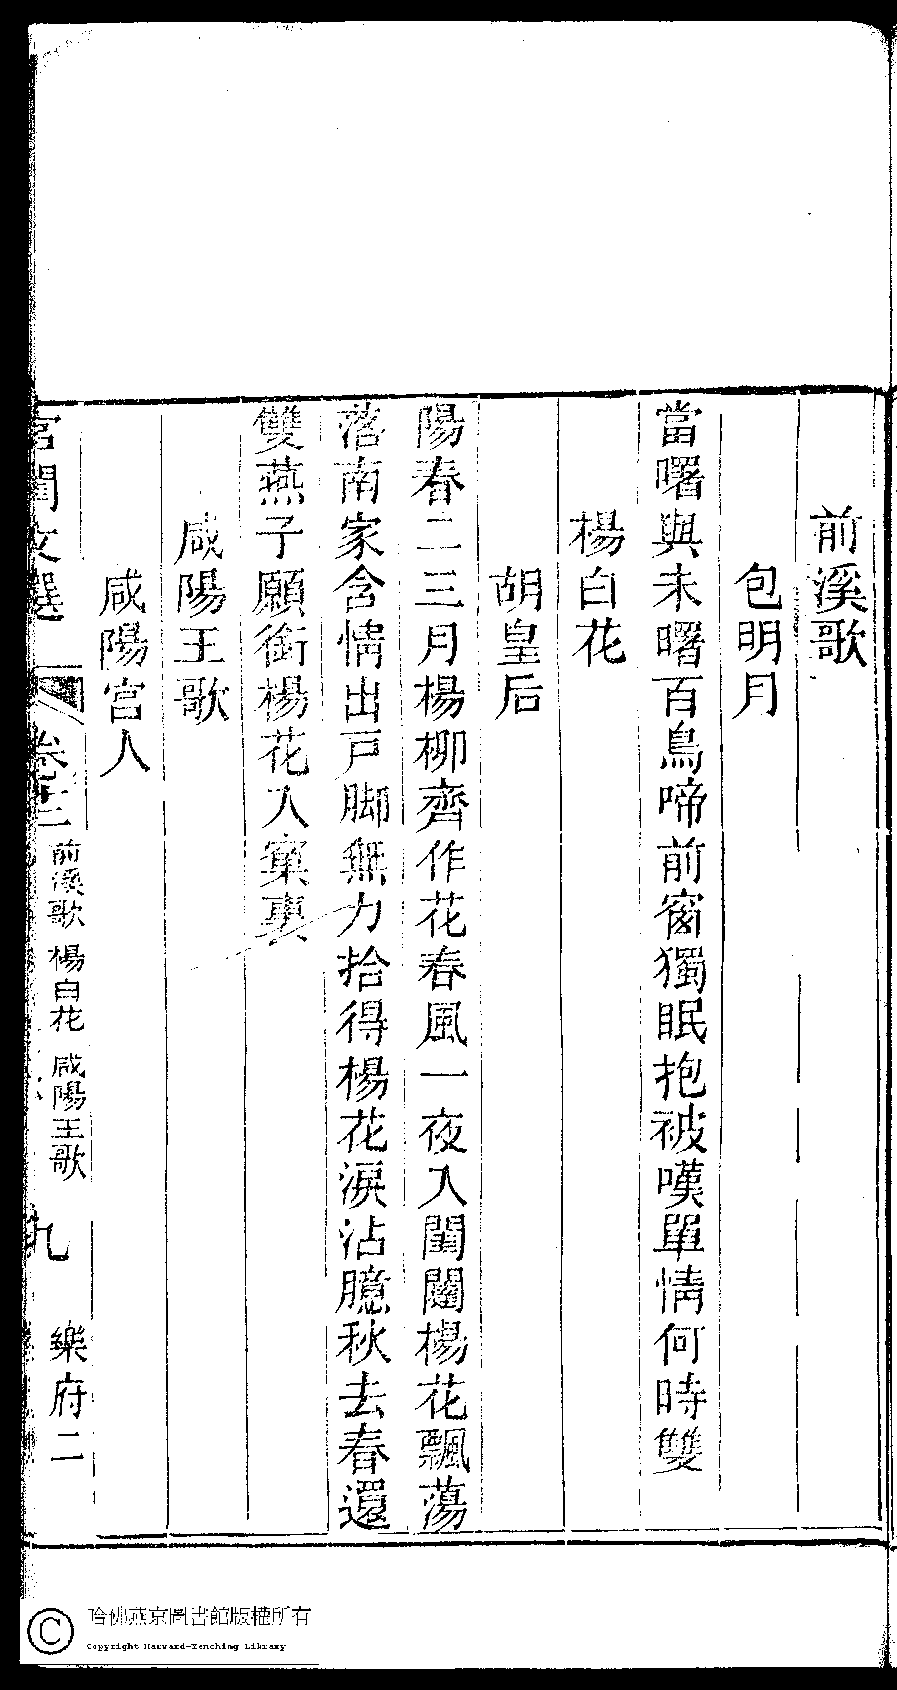 前溪歌
包明月
當曙與未曙百鳥啼前窗獨眠抱被嘆單情何時雙
楊白花
胡皇后
陽春二三月楊柳齊作花春風一夜入閨闥楊花飄蕩
落南家含情出戸脚無力拾得楊花淚沾臆秋去春還
雙燕子願銜楊花入窠裏
咸陽王歌
咸陽宮人
宮閨文選
卷十二
前溪歌 楊白花 咸陽王歌
九
樂府二
哈佛燕京圖書館版權所有
Copyright Harvard-Yenching Library